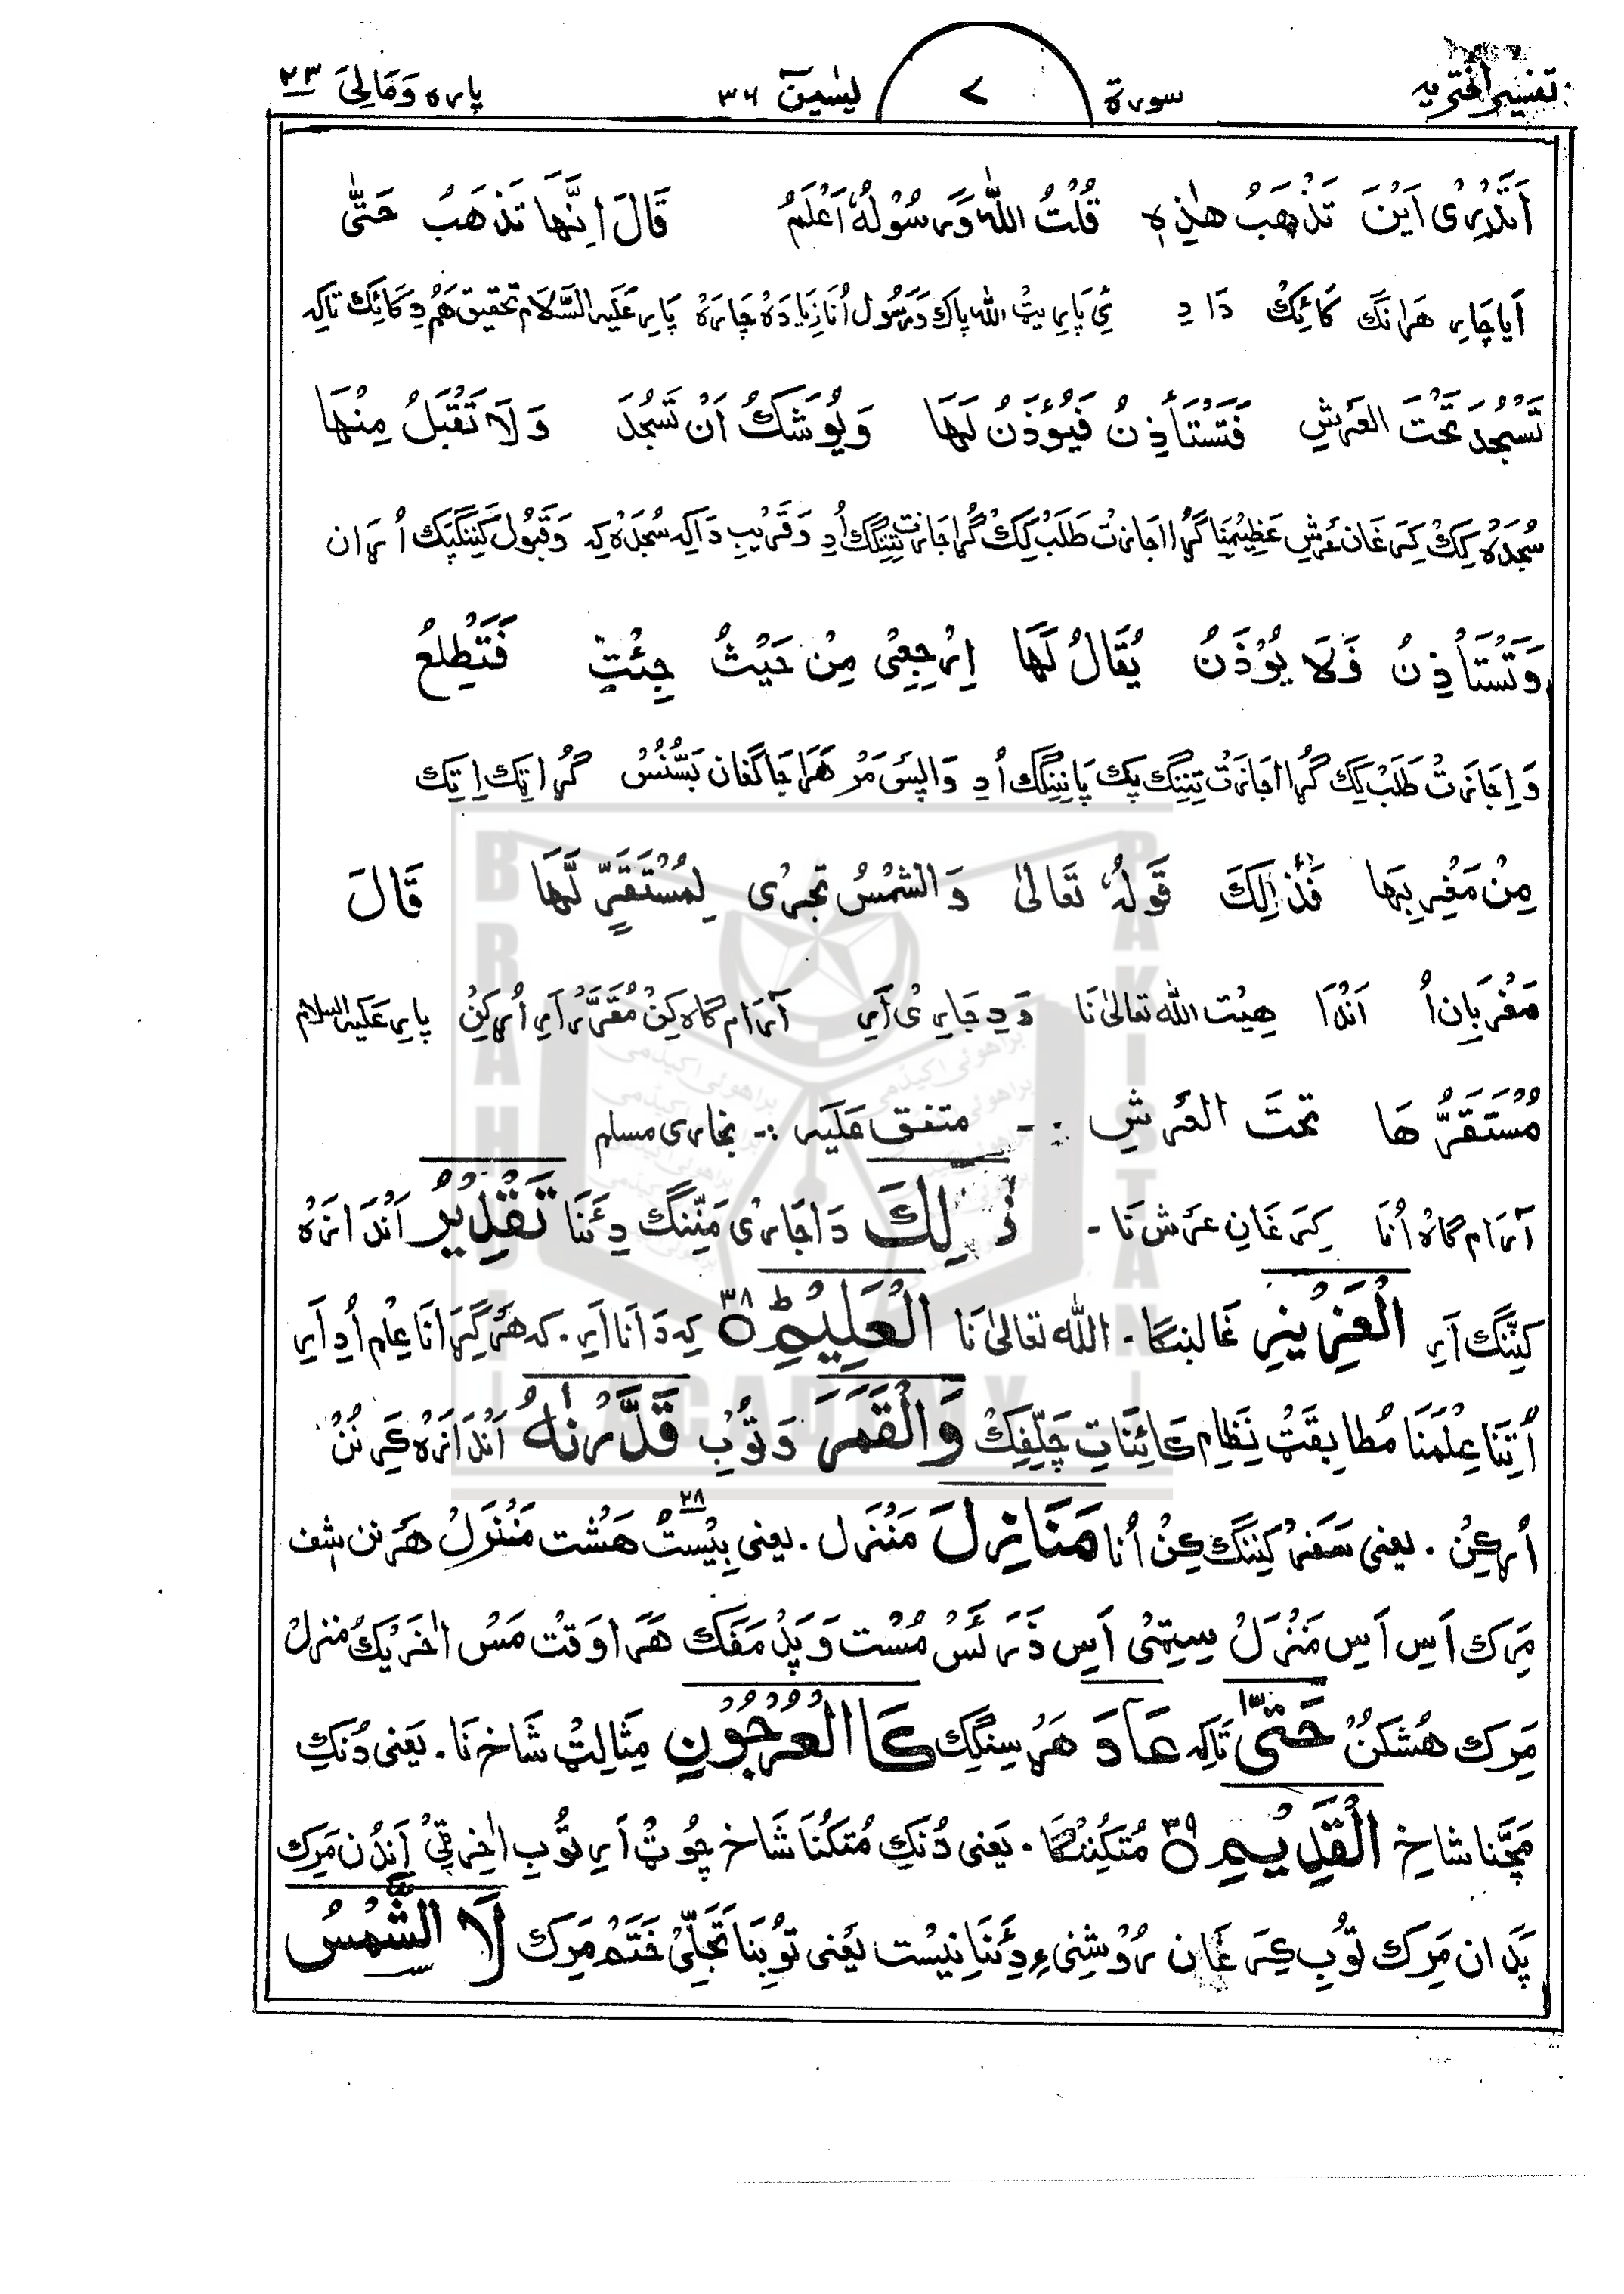 تفسیر اختریه سورة ٧ یٰسین ٣٦ پاره وَمَالِیَ ٢٣
اَتَدْرِیْ اَیْنَ تَذْهَبُ هٰذِهٖ قُلْتُ اللّٰهُ وَرَسُوْلُهٗ اَعْلَمُ قَالَ اِنَّهَا تَذْهَبُ حَتّٰی
اَیا چَاسِ هَرَانَگ کَائِکْ دَا دِ ئِ پَارِیٹ الله پاک دَ رَسُول اُنَا زِیَادَهْ چَارَهْ پَارِ عَلَیهِ السَّلَام تحقیق هَم دِ کَائِک تاکِه
تَسْجُدَ تَحْتَ الْعَرْشِ فَتَسْتَأْذِنُ فَیُؤْذَنُ لَهَا وَیُوْشَكُ اَنْ تَسْجُدَ وَلَا تُقْبَلُ مِنْهَا
سُجْدَهْ کِکْ کِیرَغَان عَرْشِ عَظِیْمِنَا گُڑا اجَازَتْ طَلَبْ کِکْ گُڑا جَازَت تِنِنْگِکْ اُدِ وَ قَرِیْبِ دَاکِه سُجْدَهْ کِه وَ قَبُول کَنِنْگپَک اُرَان
وَتَسْتَأْذِنُ فَلَا یُؤْذَنُ یُقَالُ لَهَا اِرْجِعِیْ مِنْ حَیْثُ جِئْتِ فَتَطْلِعُ
وَ اِجَازَتْ طَلَبْ کِک گُڑا اجَازَتْ تِنِنْگ پک پَانِنْگِک اُدِ وَاپِسْ مَرْ هَرَا جَاگَغَان بَسُّنُسْ گُڑا تِک اِتِک
مِنْ مَغْرِبِهَا فَذٰلِكَ قَوْلُهٗ تَعَالٰی وَالشَّمْسُ تَجْرِیْ لِمُسْتَقَرٍّ لَّهَا قَالَ
مَغْرِبَانِ اُ اَنْدَا هِیْت الله تعالیٰ نَا وَ دِ جَارِیْ اَرِ آرَام گاه کِنْ مُقَرَّرْ اَرِ اُڑکِنْ پارِ عَلَیهِ السلام
مُسْتَقَرُّهَا تَحْتَ الْعَرْشِ :- متفق عَلَیه :- بخاری مسلم
آرَام گاهْ اُنَا کِیرَغَانِ عَرَش نَا - ذٰلِكَ دَا جَارِیْ مَنِّنْگ دِئنَا تَقْدِیْرُ اَنْدَازَهْ
کِنِّنْگ اَرِ الْعَزِیْزِ غَالِبنگا - الله تعالیٰ نَا الْعَلِیْمِ ٣٨ کِه دَانَا اَرِ - که هَرْ گِرَانَا عِلْم اُدِ اَرِ
اُتِنَا عِلْمَنَا مُطابِقَٹْ نَظَامِ کائِنَاتِ چَلِّفِکْ وَالْقَمَرَ وَتُوْبِ قَدَّرْنٰهُ اَنْدَازَهْ کَرِنُنْ
اُڑکِنْ - یعنی سَفَرْ کَنِنْگ کِنْ اُنَا مَنَازِلَ مَنْزَل - یعنی بِیْسْتْ ٢٨ هَشْت مَنْزَلْ هَرنن شف
مَرِک اَسِ اَسِ مَنْزَلْ سِیٹیْ اَسِ ذَرَّئَسْ مُسْت وَ پَدْ مَفَک هَرَا وَقْت مَسْ اٰخَرِیْک منزل
مَرِک هُشکُنْ حَتّٰی تَاکِه عَادَ هَرْسِنگِک کَا الْعُرْجُوْنِ مِثَالِٹْ شَاخ نَا - یَعْنی دُنکِ
مَچّنا شاخِ الْقَدِیْمِ ٣٩ مُتکُنَنگا - یَعْنی دُنکِ مُتکُنَا شَاخ چُوٹ اَرِ تُوْبِ اٰخِرقِیْ اَنْدُن مَرِک
پَدَان مَرِک تُوْبِ کِیرَغَان رُوْشِنیءِ دِئنَا نِیسْت یَعْنی تُوْبنَا تَجَلِّیْ خَتَم مَرِک لَا الشَّمْسُ